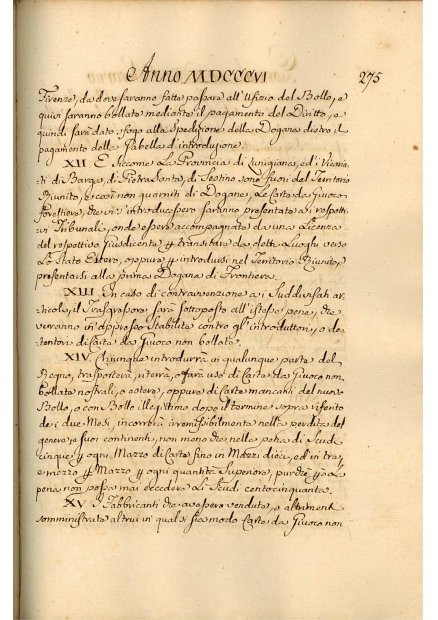 Anno MDCCCVI
275
Firenze, da dove saranno fatte passare all'Ufizio del Bollo, e
quivi saranno bollate mediante il pagamento del Diritto, e
quindi sarà dato sfogo alla spedizione della Dogana dietro il
pagamento della Gabella d'introduzione.
XII E siccome La Provincia di Lunigiana, ed i Vicaria
ti di Barga, di Pietra Santa, di Sestino sono fuori del Territorio
Riunito, e così non guarniti di Dogane, Le Carte da Giuoco
forestiere, che vi s'introducessero saranno presentate ai rispetti
vi Tribunali, onde essere accompagnate da una Licenza
del respettivo Giusdicente p transitare da detti Luoghi verso
Lo Stato Estero, oppure p introdursi nel Territorio Riunito,
presentarsi alla prima Dogana di Frontiera.
XIII In caso di contravvenzione ai Suddivisati ar
ticoli, il Trasgressore sarà sottoposto all'istesse pene, che
verranno in appresso stabilite contro gl'introduttori, o de
tentori di Carte da Giuoco non bollate.
XIV Chiunque introdurrà in qualunque parte del
Regno, trasporterà, iterrà, o farà uso di Carte da Giuoco non
bollate nostrali, o estere, oppure di Carte mancanti del nuovo
Bollo, o con Bollo illegittimo dopo il termine sopra riferito
dei due Mesi, incorrerà irremissibilmente nella perdita del
genere, e suoi continenti, non meno che nella pena di Scudi
cinque p ogni Mazzo di Carte fino in Mazzi dieci, ed in tre,
e mezzo p Mazzo p ogni quantità Superiore, purchè La
pena non possa mai eccedere Li Scudi centocinquanta.
XV I Fabbricanti che avessero venduto, o altrimenti
somministrato altrui in qualsisia modo Carte da Giuoco non